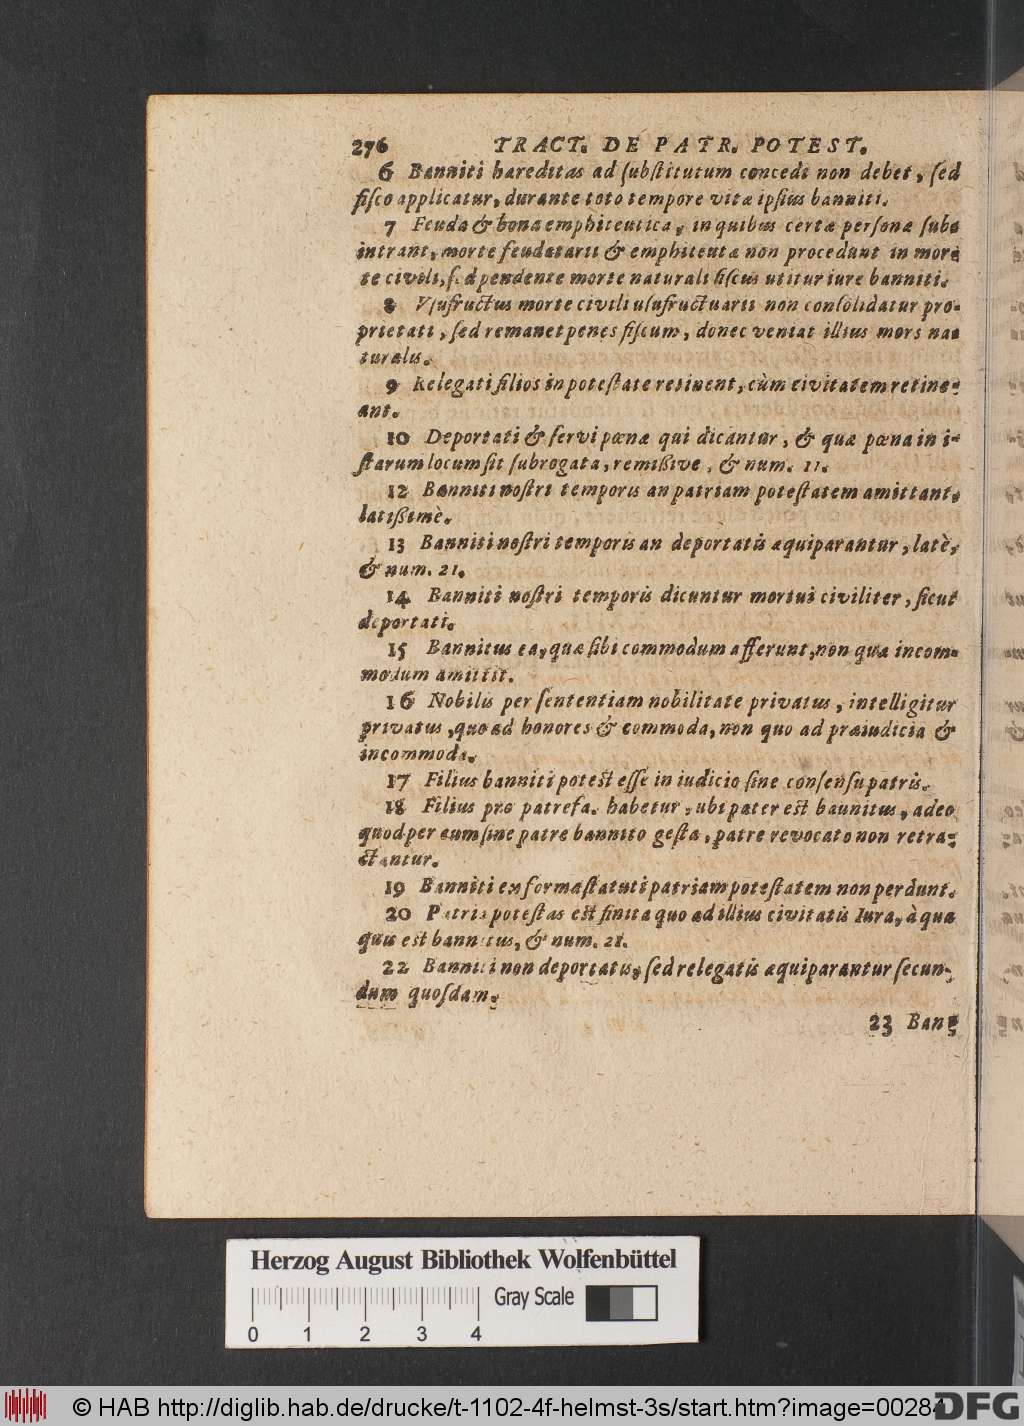 276 TRACT. DE PATR. POTEST.
6 Banniti hæreditas ad ſubſtitutum concedi non debet, ſed
fiſco applicatur, durante toto tempore vitæ ipſius banniti.
7 Feuda & bona emphiteutica, in quibus certæ perſonæ ſub-
intrant, morte feudatarii & emphiteutæ non procedunt in mor-
te civili, ſed pendente morte naturali fiſcus utitur iure banniti.
8 Vſufructus morte civili uſufructuarii non conſolidatur pro-
prietati, ſed remanet penes fiſcum, donec veniat illius mors na-
turalis.
9 Relegati filios in poteſtate retinent, cùm civitatem retine-
ant.
10 Deportati & ſervi pœnæ qui dicantur, & quæ pœna in i-
ſtarum locum ſit ſubrogata, remiſſive, & num. 11.
12 Banniti noſtri temporis an patriam poteſtatem amittant,
latiſſimè.
13 Banniti noſtri temporis an deportatis æquiparantur, latè,
& num. 21.
14 Banniti noſtri temporis dicuntur mortui civiliter, ſicut
deportati.
15 Bannitus ea, quæ ſibi commodum afferunt, non quæ incom-
modum amittit.
16 Nobilis per ſententiam nobilitate privatus, intelligitur
privatus, quo ad honores & commoda, non quo ad præiudicia &
incommoda.
17 Filius banniti poteſt eſſe in iudicio ſine conſenſu patris.
18 Filius pro patrefa. habetur, ubi pater eſt baunitus, adeo
quod per eum ſine patre bannito geſta, patre revocato non retra-
ctantur.
19 Banniti ex forma ſtatuti patriam poteſtatem non perdunt.
20 Patria poteſtas eſt finita quo ad illius civitatis Iura, à qua
quis eſt bannitus, & num. 21.
22 Banniti non deportatis, ſed relegatis æquiparantur ſecun-
dum quoſdam.
23 Ban-
Herzog August Bibliothek Wolfenbüttel
Gray Scale
0 1 2 3 4
© HAB http://diglib.hab.de/drucke/t-1102-4f-helmst-3s/start.htm?image=00284
DFG